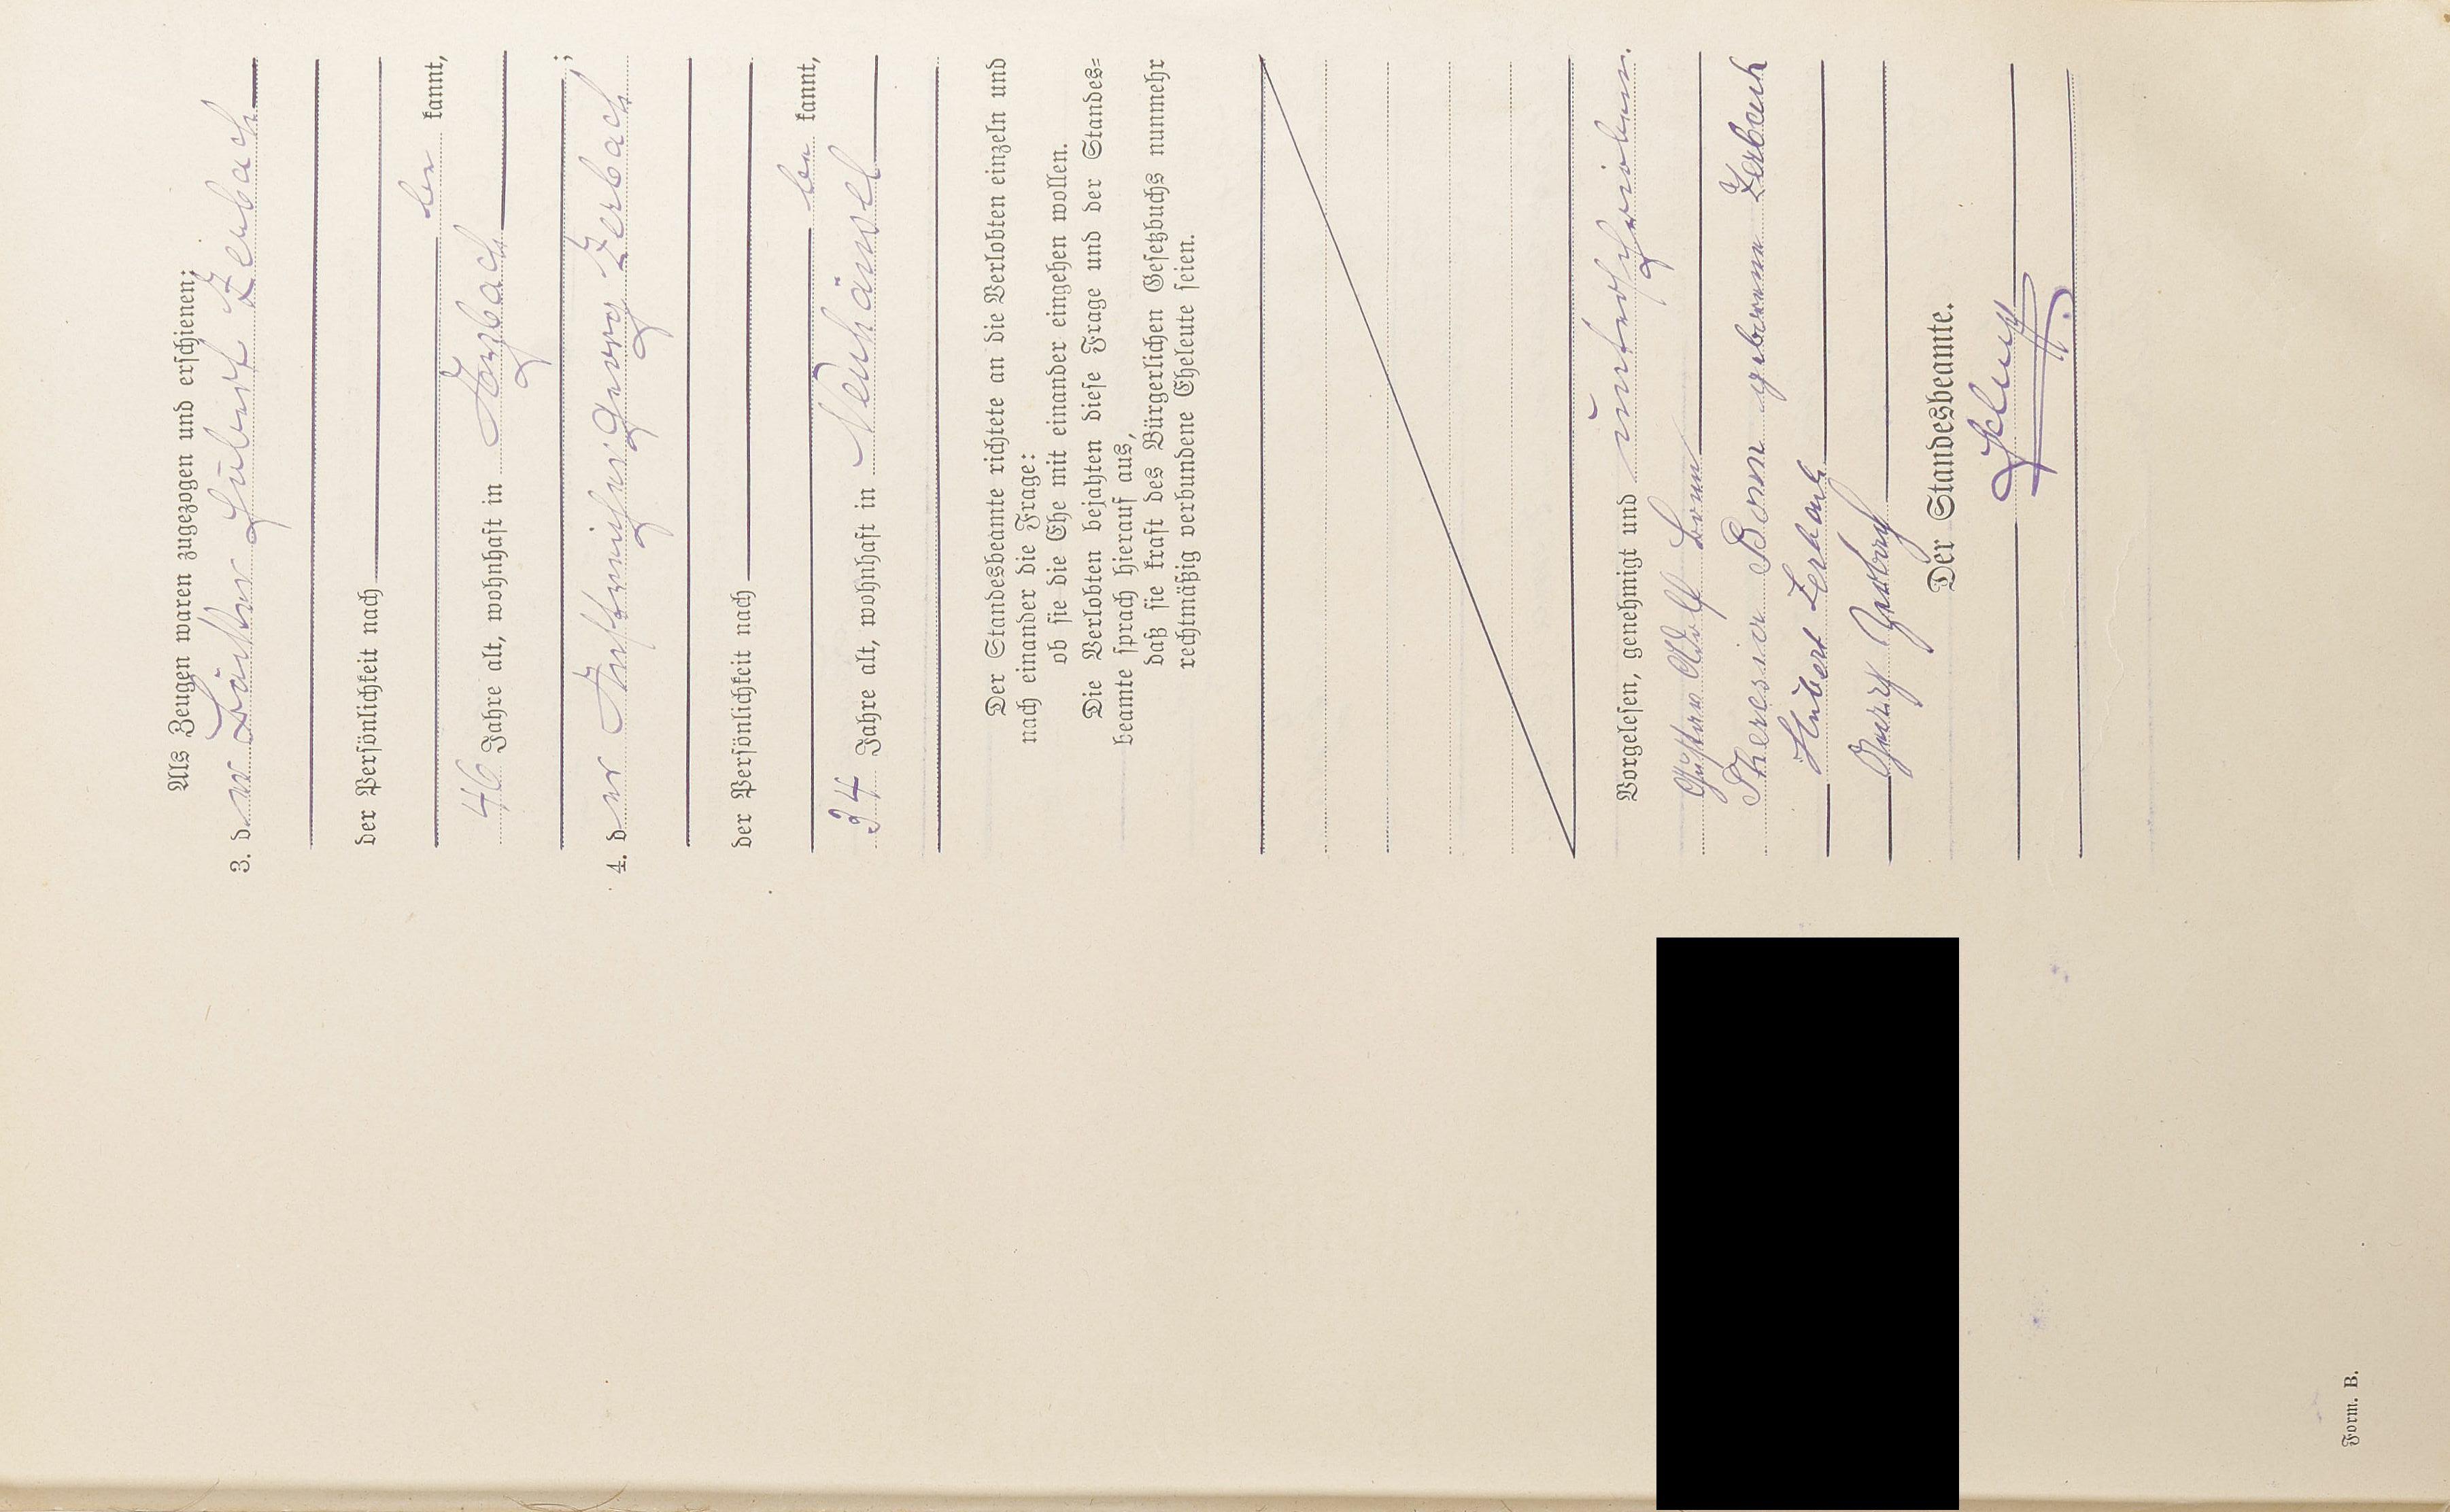 Als Zeugen waren zugezogen und erschienen:
3. der Bäcker Hubert Zerbach
der Persönlichkeit nach
be kannt,
46 Jahre alt, wohnhaft in
4. der Georg Zerbach;
der Persönlichkeit nach
be kannt,
34 Jahre alt, wohnhaft in Neuhäusel
Der Standesbeamte richtete an die Verlobten einzeln und
nach einander die Frage:
ob sie die Ehe mit einander eingehen wollen.
Die Verlobten bejahten diese Frage und der Standes-
beamte sprach hierauf aus,
daß sie kraft des Bürgerlichen Gesetzbuchs nunmehr
rechtmäßig verbundene Eheleute seien.
Vorgelesen, genehmigt und unterschrieben.
Gustav Adolf Bonn
Theresia Bonn geborene Zerbach
Hubert Zerbach
Georg Zerbach
Der Standesbeamte.
Form. B.